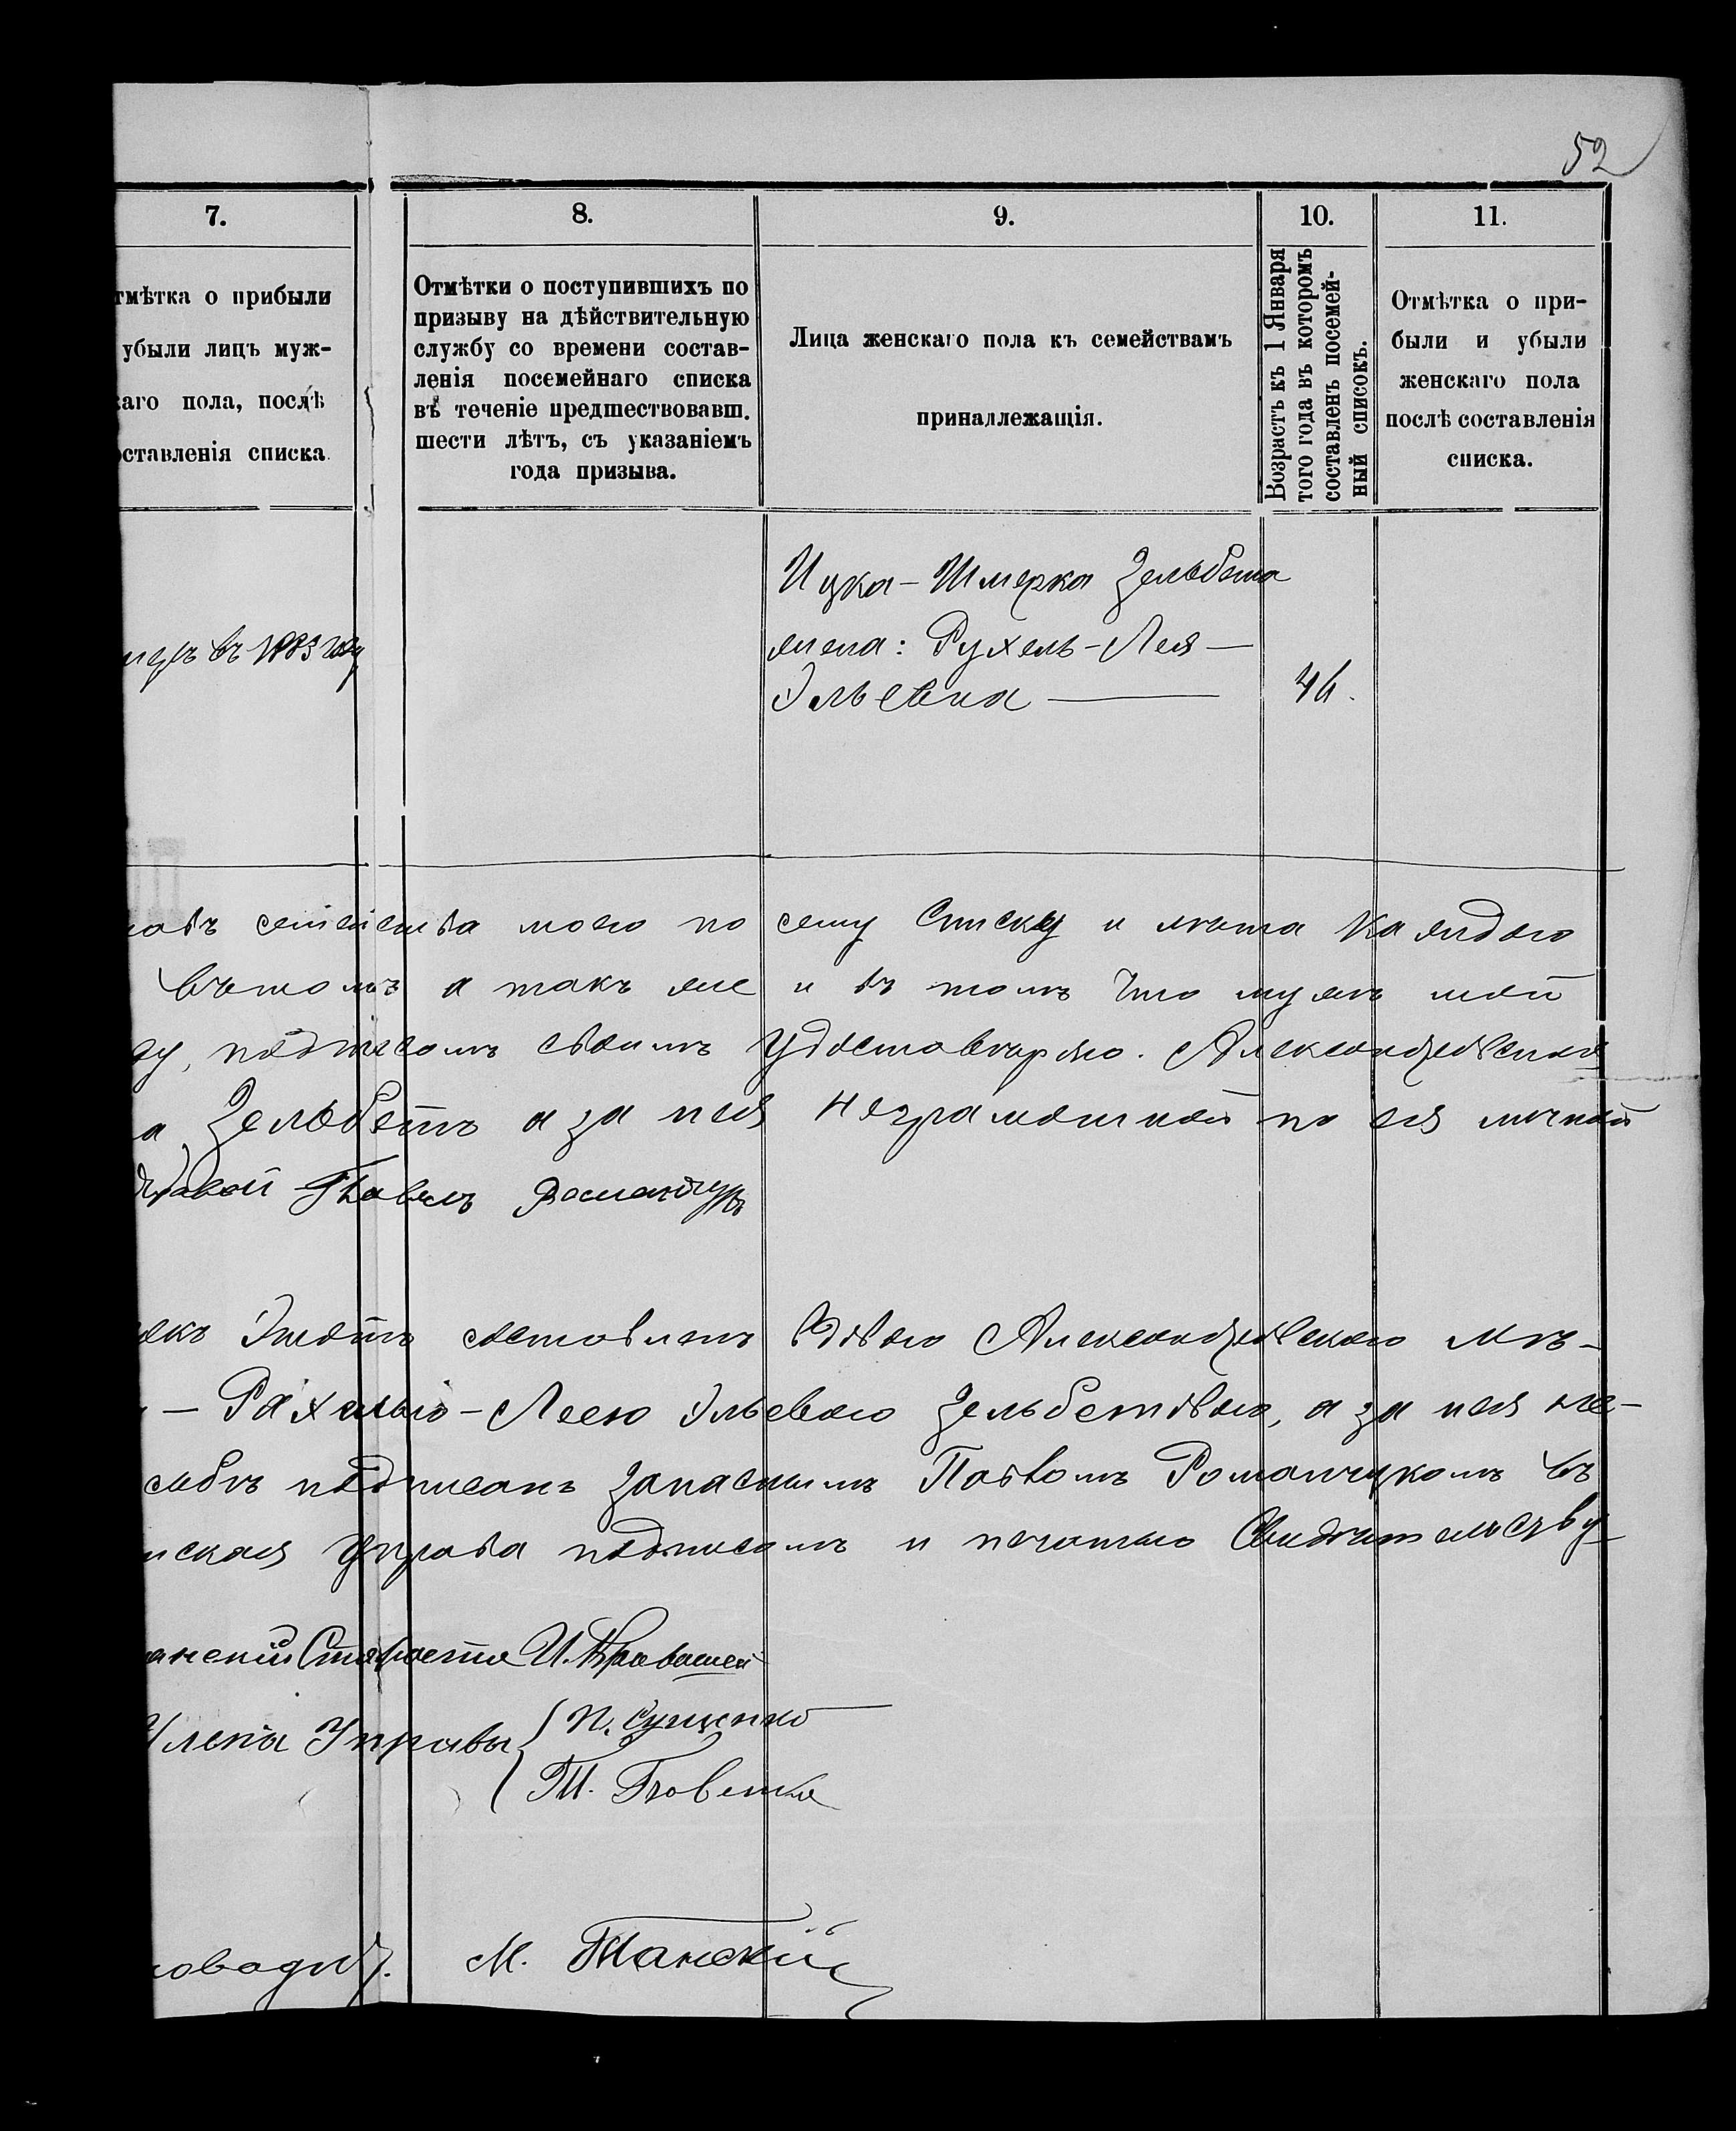 52
7. 8. 9. 10. 11.
тмѣтка о прибыли
убыли лицъ муж-
каго пола, послѣ
оставленія списка.
Отмѣтки о поступившихъ по
призыву на дѣйствительную
службу со времени состав-
ленія посемейнаго списка
въ теченіе предшествовавш.
шести лѣтъ, съ указаніемъ
года призыва.
Лица женскаго пола къ семействамъ
принадлежащія.
Возрастъ къ 1 Января
того года въ которомъ
составленъ посемей-
ный списокъ.
Отмѣтка о при-
были и убыли
женскаго пола
послѣ составленія
списка.
въ 1883 году
Ицка-Шмерка Зельбета
жена: Рухель-Лея-
Эльевна 46.
новъ семейства моего по сему списку и лѣта каждого
вѣтомъ а такъ же и въ томъ что мужъ мой
ду, подписомъ своимъ удостовѣряю. Александровская
а Зельбетъ а за нея неграмотной по ея личной
Павелъ Романчукъ
екъ Этотъ составленъ Вдовою Александровскою мѣ-
- Рахилью-Леею Эльевою Зельбетовою, а за нея не-
подписанъ запаснымъ Павломъ Романчукомъ въ
нская управа подписомъ и печатью Свидѣтельству-
анскій Староста И. Кравацкій
Члены Управы { П. Сущенко
Т. Бовенко
оводит. М. Танскій